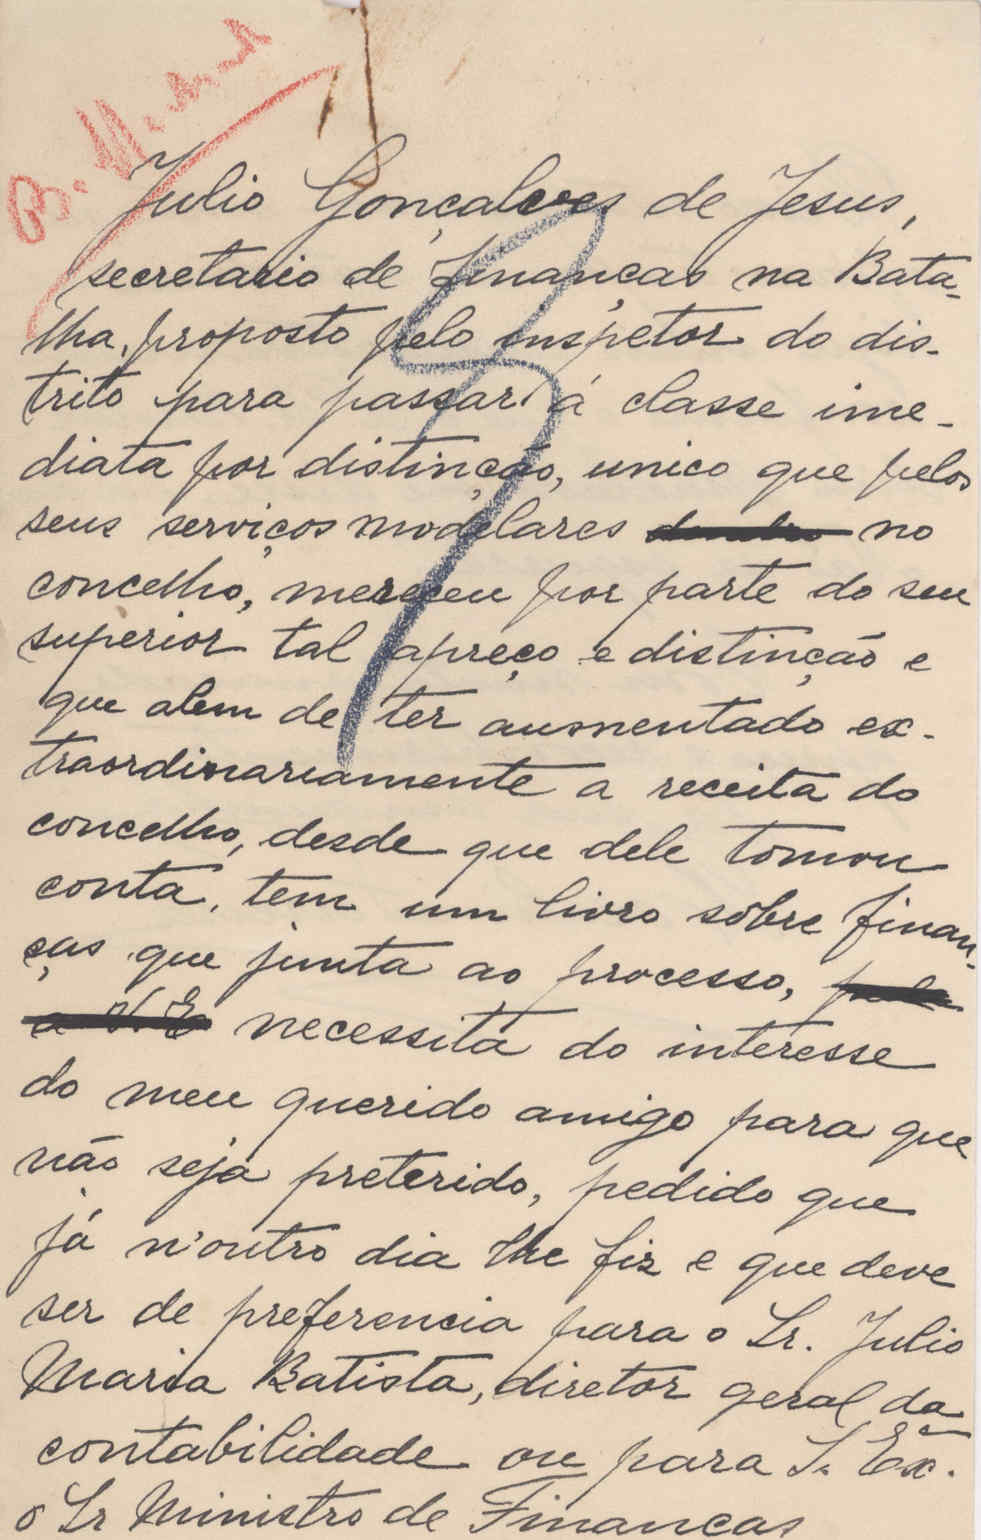 Julio Gonçalves de Jesus,
secretario de Finanças na Bata-
lha, proposto pelo inspetor do dis-
trito para passar á classe ime-
diata por distinção, unico que pelos
seus serviços modelares no
concelho, mereceu por parte do seu
superior tal apreço e distinção e
que alem de ter aumentado ex-
traordinariamente a receita do
concelho, desde que dele tomou
conta, tem um livro sôbre finan-
ças que junta ao processo,
a V. E necessita do interesse
do meu querido amigo para que
não seja preterido, pedido que
já n'outro dia lhe fiz e que deve
ser de preferencia para o Sr. Julio
Maria Batista, diretor geral da
contabilidade ou para S. Exª.
o Sr Ministro de Finanças